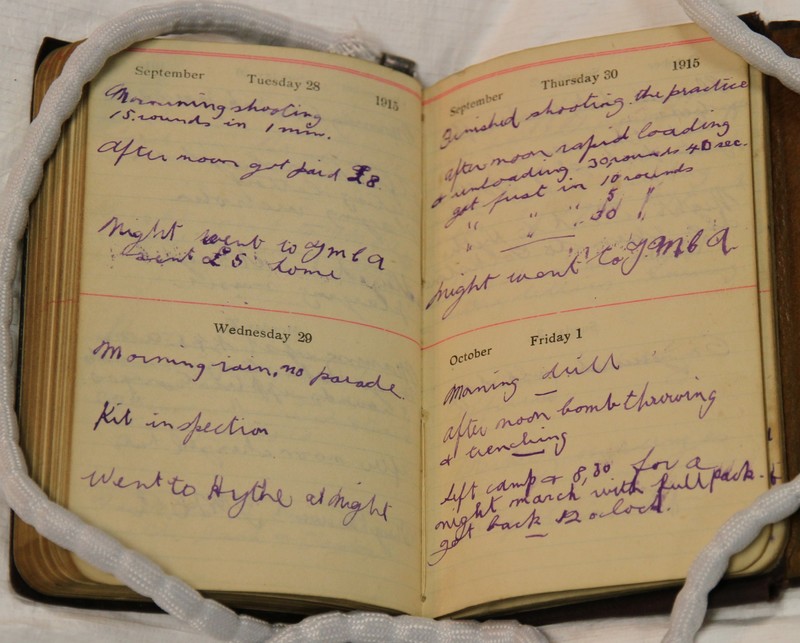 September Tuesday 28 1915
Mornining shooting
15 rounds in 1 min.
After noon got paid £8
Night went to YMCA
sent £5 home
Wednesday 29
Morning rain, no parade
Kit inspection
Went to Hythe at night
September Thursday 30 1915
Finished shooting the practice
After noon rapid loading
& unloading 30 rounds 40 sec.
got first in 10 rounds
" " " 5 "
" " " 30
Night went to YMCA
October Friday 1
Morning drill
After noon bomb throwing
& trenching
Left camp 8,30 for a
night march with full pack.
got back 12 oclock.